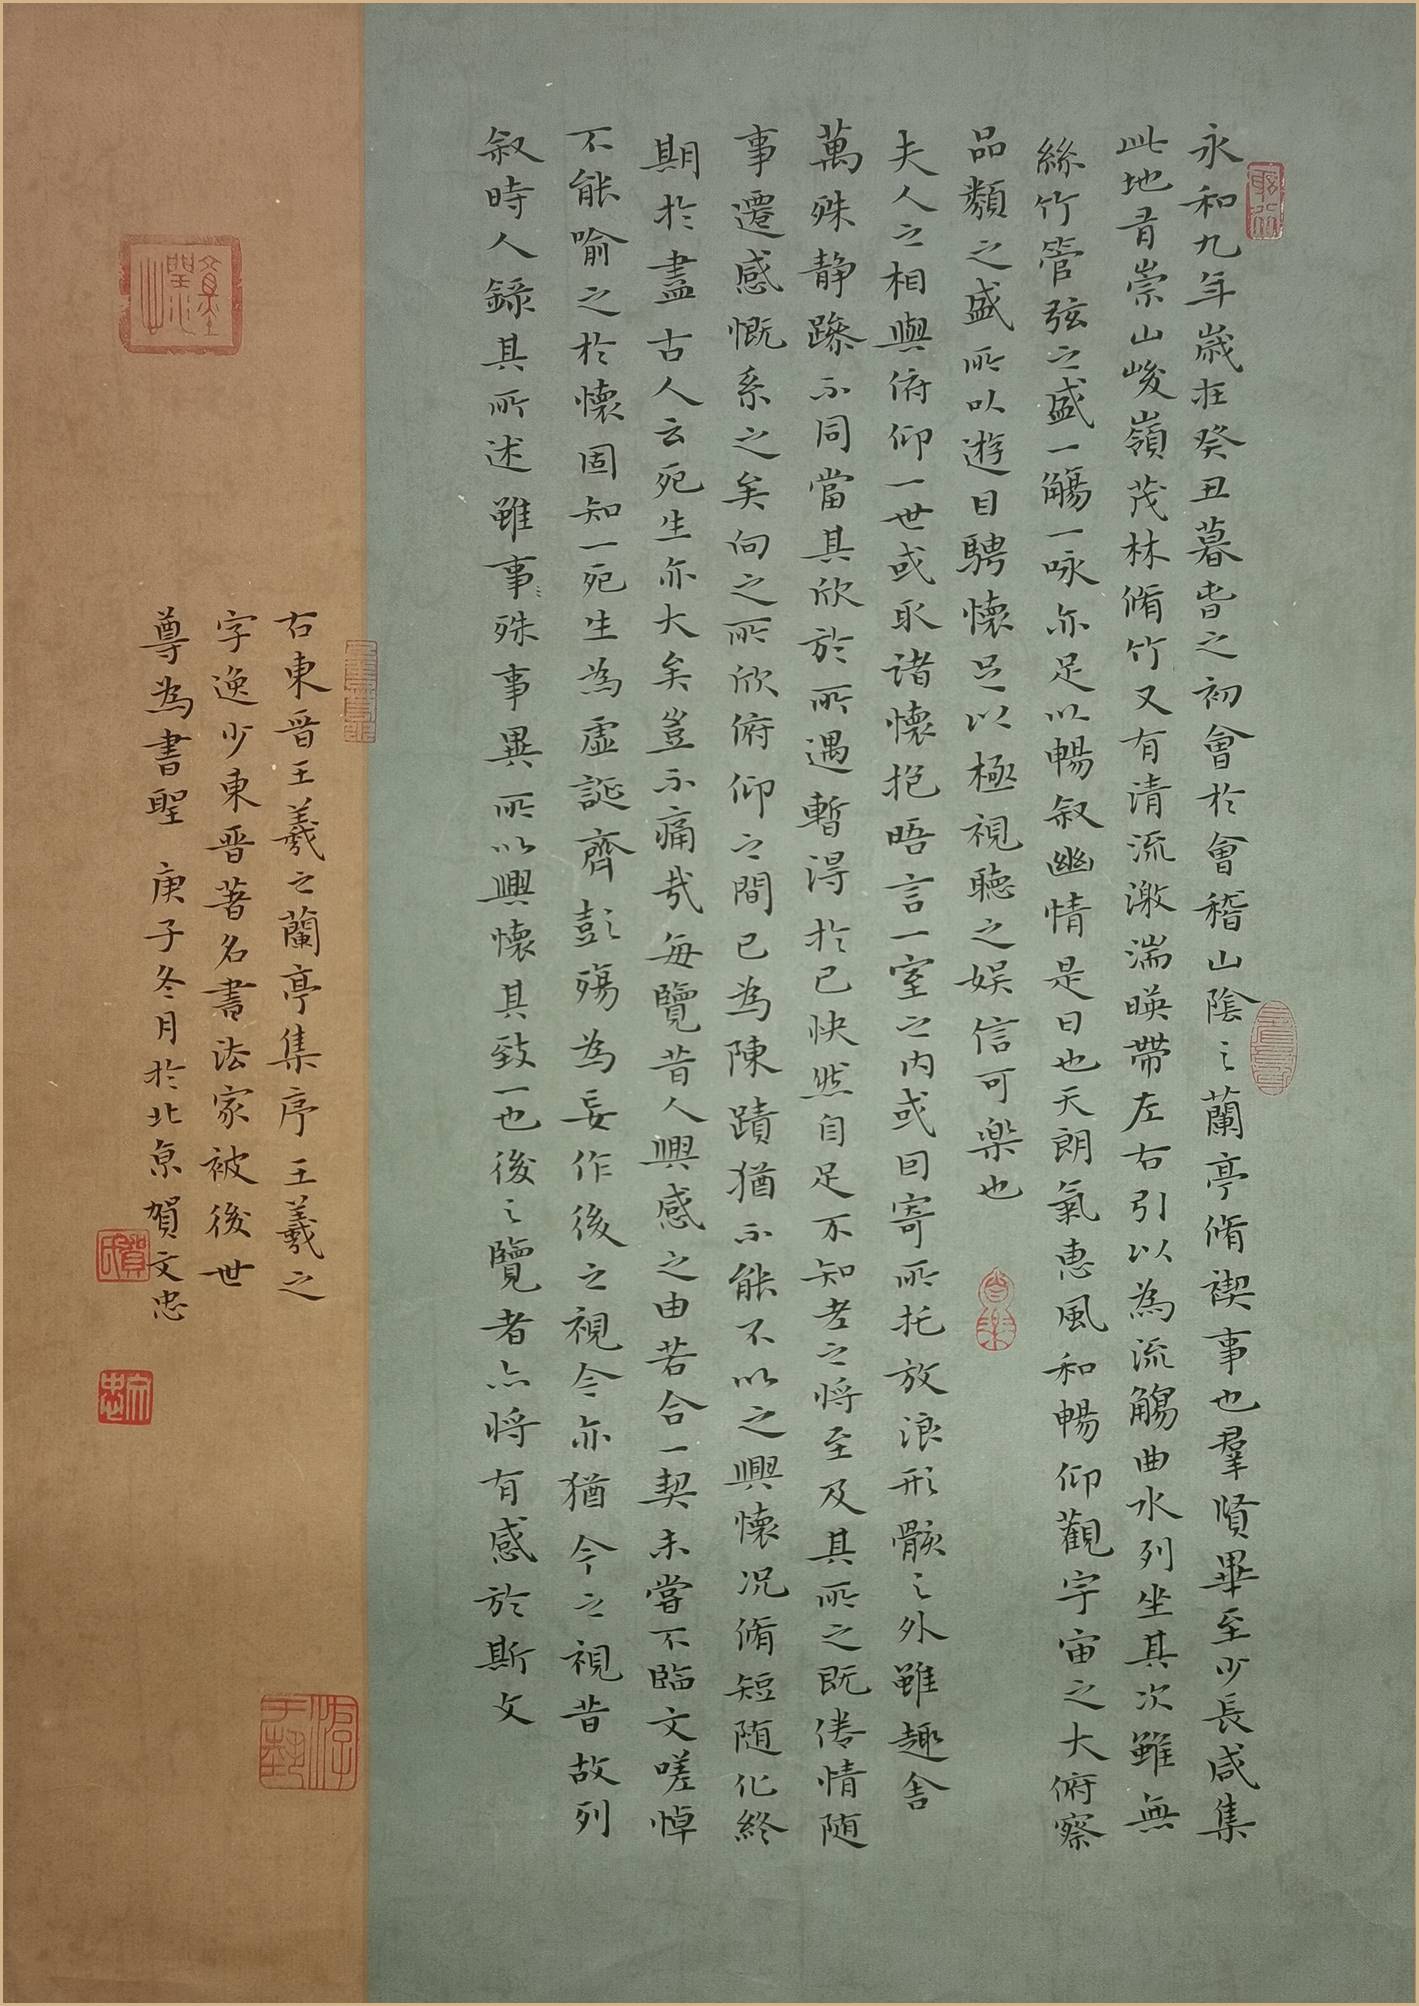 永和九年歲在癸丑暮春之初會於會稽山陰之蘭亭脩禊事也羣賢畢至少長咸集
此地有崇山峻嶺茂林脩竹又有清流激湍暎帶左右引以為流觴曲水列坐其次雖無
絲竹管弦之盛一觴一咏亦足以暢叙幽情是日也天朗氣惠風和暢仰觀宇宙之大俯察
品類之盛所以遊目騁懷足以極視聽之娛信可樂也
夫人之相與俯仰一世或取诸懷抱晤言一室之内或因寄所托放浪形骸之外雖趣舍
萬殊静躁不同當其欣於所遇暫得於己快然自足不知老之將至及其所之既倦情随
事遷感慨系之矣向之所欣俯仰之間已為陳蹟猶不能不以之興懷况脩短随化終
期於盡古人云死生亦大矣豈不痛哉每覽昔人興感之由若合一契未嘗不臨文嗟悼
不能喻之於懷固知一死生為虛誕齊彭殤為妄作後之視今亦猶今之視昔故列
叙時人錄其所述雖事殊事異所以興懷其致一也後之覽者亦將有感於斯文
右東晋王羲之蘭亭集序 王羲之
字逸少東晋著名書法家被後世
尊為書聖 庚子冬月於北京賀文忠